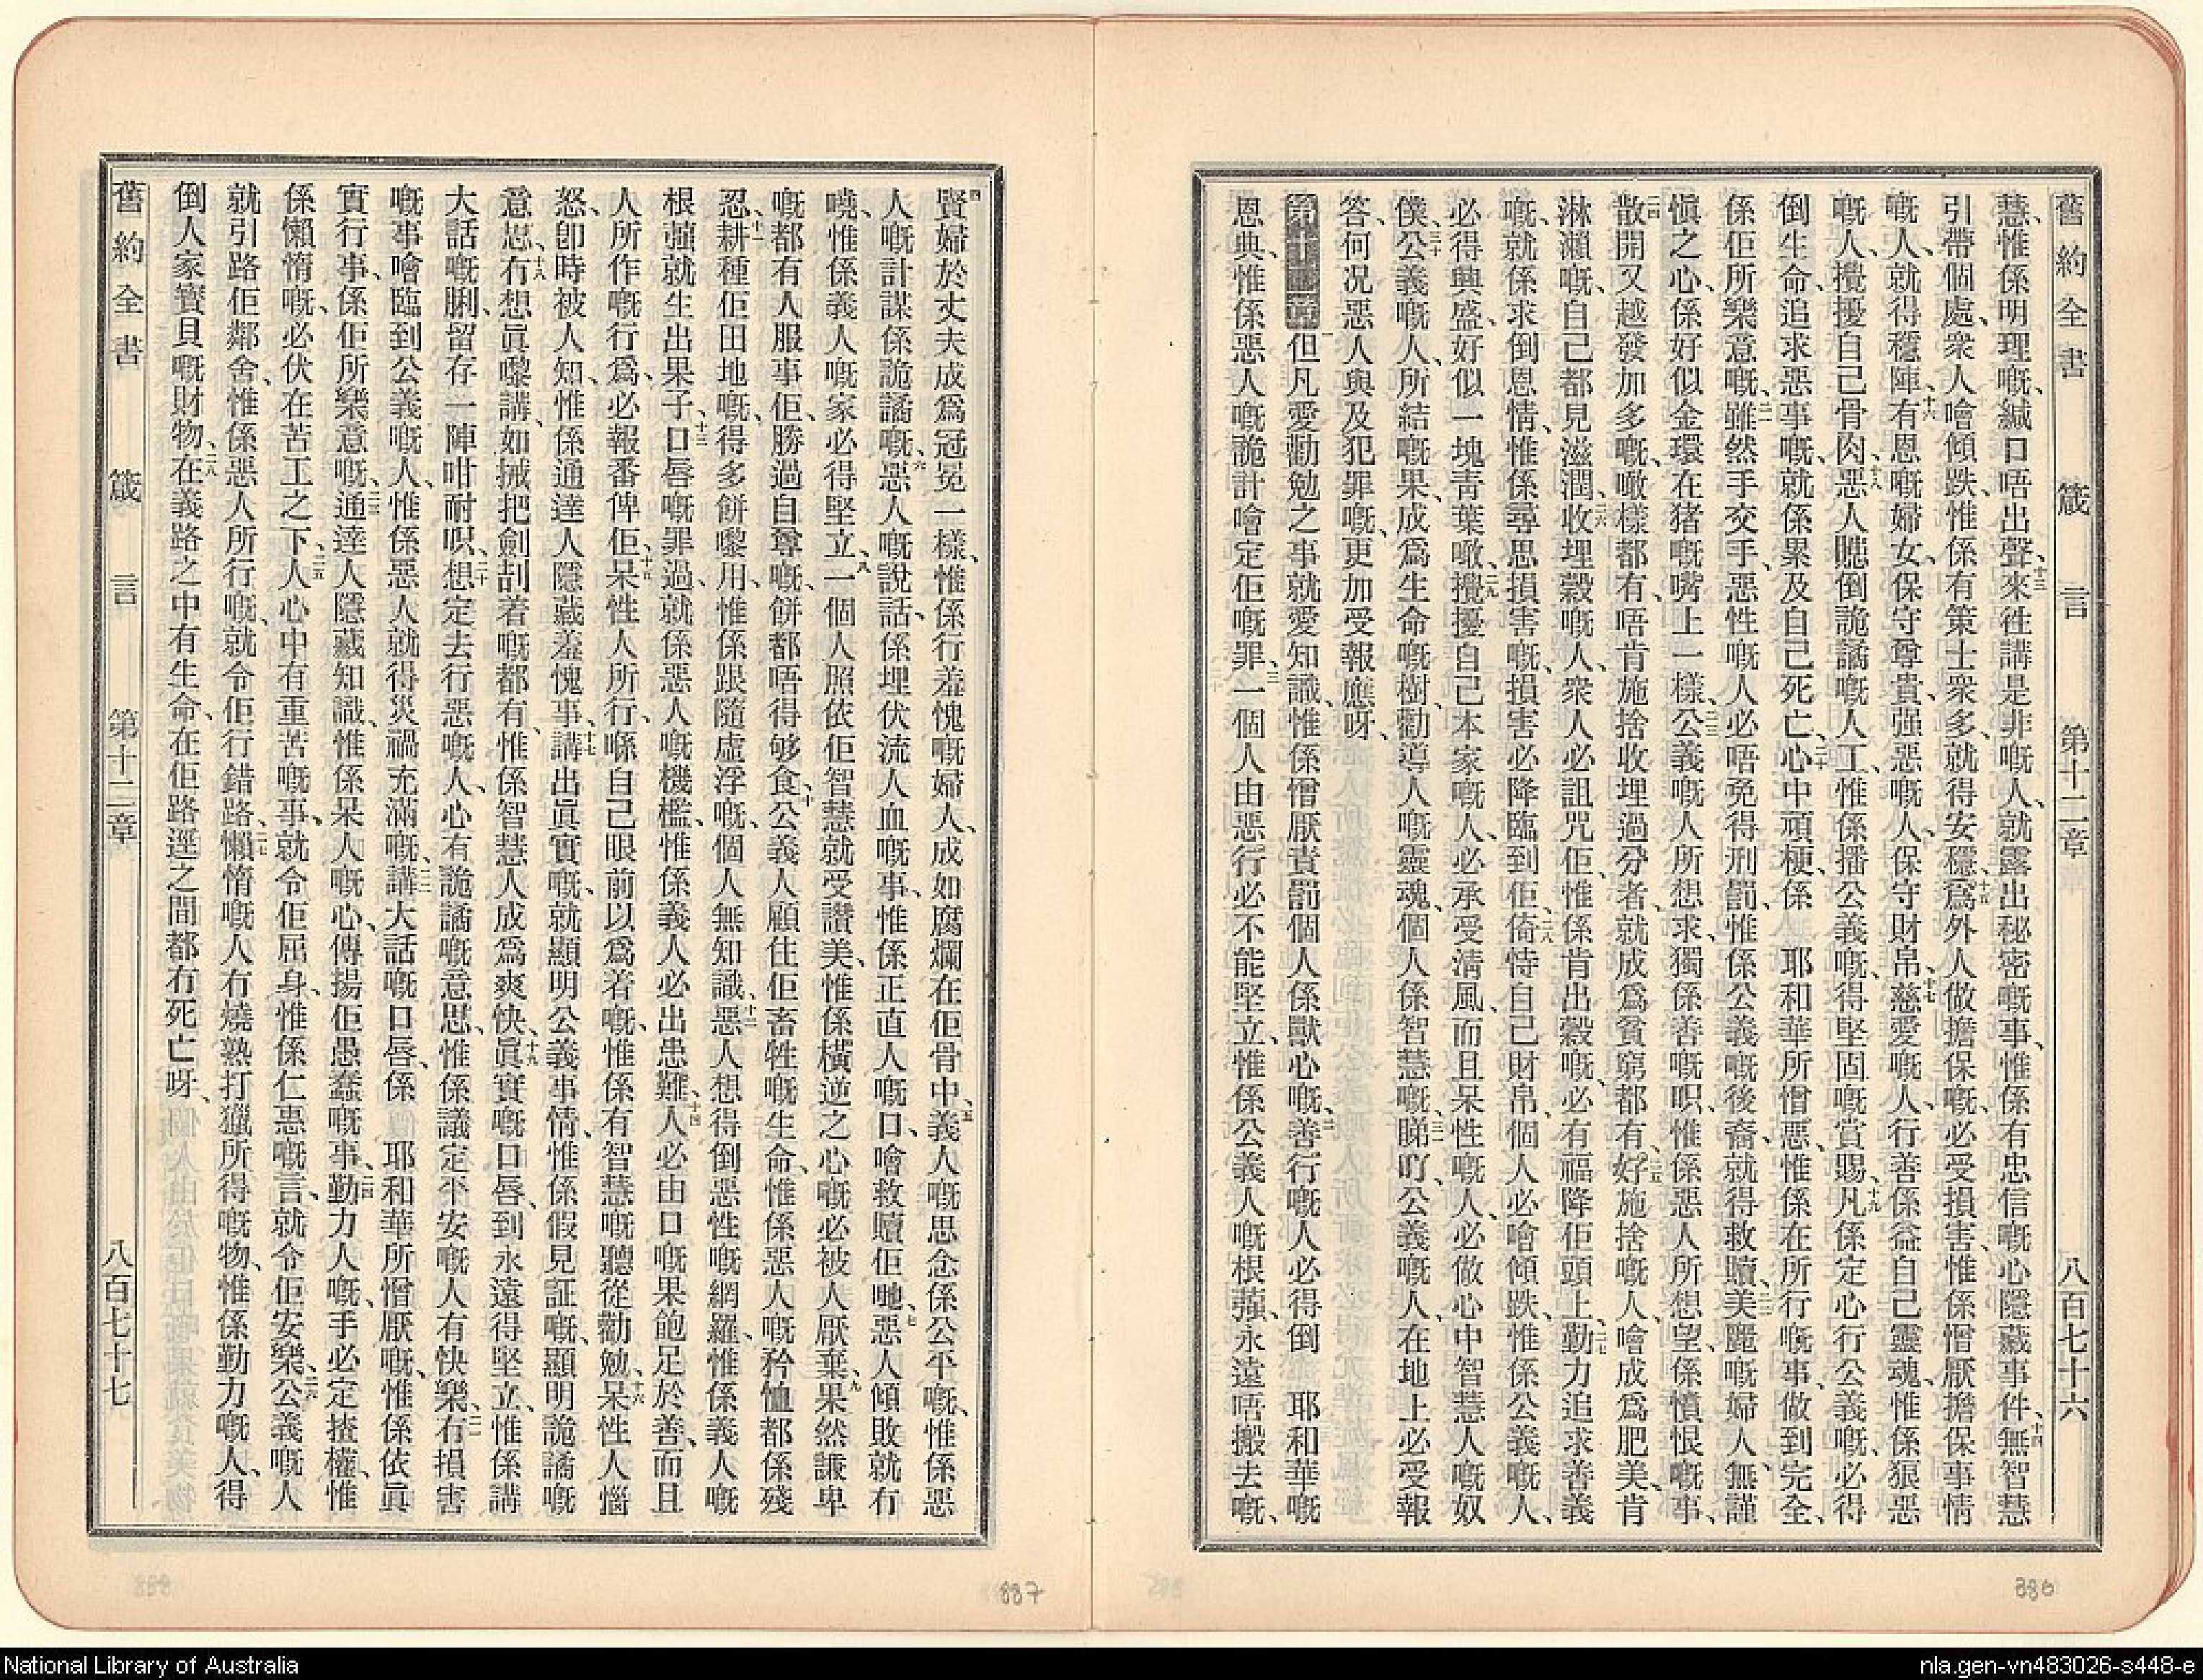 舊約全書 箴言 第十二章 八百七十六
慧、惟係明理嘅、緘口唔出聲、十三來往講是非嘅人、就露出秘密嘅事、惟係有忠信嘅心隱藏事件、十四無智慧
引帶個處、衆人噲傾跌、惟係有策士衆多、就得安穩、十五爲外人做擔保嘅、必受損害、惟係憎厭擔保事情
嘅人、就得穩陣、十六有恩嘅婦女、保守尊貴、强惡嘅人、保守財帛、十七慈愛嘅人、行善係益自己靈魂、惟係狠惡
嘅人、攪擾自己骨肉、十八惡人賺倒詭譎嘅人工、惟係播公義嘅、得堅固嘅賞賜、十九凡係定心行公義嘅、必得
倒生命、追求惡事嘅、就係累及自己死亡、二十心中頑梗、係 耶和華所憎惡、惟係在所行嘅事、做到完全、
係佢所樂意嘅、二一雖然手交手、惡性嘅人必唔免得刑罰、惟係公義嘅後裔、就得救贖、二二美麗嘅婦人、無謹
愼之心、係好似金環在猪嘅嘴上一樣、二三公義嘅人所想求、獨係善嘅呮、惟係惡人所想望、係憤恨嘅事、
二四散開又越發加多嘅、噉樣都有、唔肯施捨收埋過分者、就成爲貧窮都有、二五好施捨嘅人、噲成爲肥美、肯
淋灑嘅、自己都見滋潤、二六收埋穀嘅人、衆人必詛咒佢、惟係肯出穀嘅、必有福降佢頭上、二七勤力追求善義
嘅、就係求倒恩情、惟係尋思損害嘅、損害必降臨到佢、二八倚恃自己財帛、個人必噲傾跌、惟係公義嘅人、
必得興盛、好似一塊青葉噉、二九攪擾自己本家嘅人、必承受清風、而且呆性嘅人、必做心中智慧人嘅奴
僕、三十公義嘅人、所結嘅果、成爲生命嘅樹、勸導人嘅靈魂、個人係智慧嘅、三一睇吖、公義嘅人、在地上必受報
答、何况惡人與及犯罪嘅、更加受報應呀、
第十二章 一但凡愛勸勉之事、就愛知識、惟係憎厭責罰個人係獸心嘅、二善行嘅人必得倒 耶和華嘅
恩典、惟係惡人嘅詭計噲定佢嘅罪、三一個人由惡行必不能堅立、惟係公義人嘅根蔃、永遠唔搬去嘅、
880
四賢婦於丈夫成爲冠冕一樣、惟係行羞愧嘅婦人、成如腐爛在佢骨中、五義人嘅思念係公平嘅、惟係惡
人嘅計謀係詭譎嘅、六惡人嘅說話、係埋伏流人血嘅事、惟係正直人嘅口、噲救贖佢哋、七惡人傾敗就冇
曉、惟係義人嘅家必得堅立、八一個人照依佢智慧就受讚美、惟係橫逆之心嘅必被人厭棄、九果然謙卑
嘅都有人服事佢、勝過自尊嘅、餅都唔得够食、十公義人顧住佢畜牲嘅生命、惟係惡人嘅矜恤都係殘
忍、十一耕種佢田地嘅、得多餅嚟用、惟係跟隨虛浮嘅、個人無知識、十二惡人想得倒惡性嘅網羅、惟係義人嘅
根蔃就生出果子、十三口唇嘅罪過、就係惡人嘅機檻、惟係義人必出患難、十四人必由口嘅果飽足於善、而且
人所作嘅行爲、必報番俾佢、十五呆性人所行、喺自己眼前以爲着嘅、惟係有智慧嘅聽從勸勉、十六呆性人惱
怒、卽時被人知、惟係通達人隱藏羞愧事、十七講出眞實嘅、就顯明公義事情、惟係假見証嘅、顯明詭譎嘅
意思、十八冇想眞嚟講、如揻把劍刮着嘅都有、惟係智慧人成爲爽快、十九眞實嘅口唇、到永遠得堅立、惟係講
大話嘅脷、留存一陣咁耐呮、二十想定去行惡嘅人、心有詭譎嘅意思、惟係議定平安嘅人有快樂、二一冇損害
嘅事噲臨到公義嘅人、惟係惡人就得災禍充滿嘅、二二講大話嘅口唇、係 耶和華所憎厭嘅、惟係依眞
實行事、係佢所樂意嘅、二三通達人隱藏知識、惟係呆人嘅心、傳揚佢愚蠢嘅事、二四勤力人嘅、手必定揸權、惟
係懶惰嘅、必伏在苦工之下、二五人心中有重苦嘅事、就令佢屈身、惟係仁惠嘅言、就令佢安樂、二六公義嘅人
就引路佢鄰舍、惟係惡人所行嘅、就令佢行錯路、二七懶惰嘅人冇燒熟打獵所得嘅物、惟係勤力嘅人、得
倒人家寶貝嘅財物、二八在義路之中有生命、在佢路逕之間都冇死亡呀、
舊約全書 箴言 第十二章 八百七十七
887
National Library of Australia
nla.gen-vn483026-s448-e